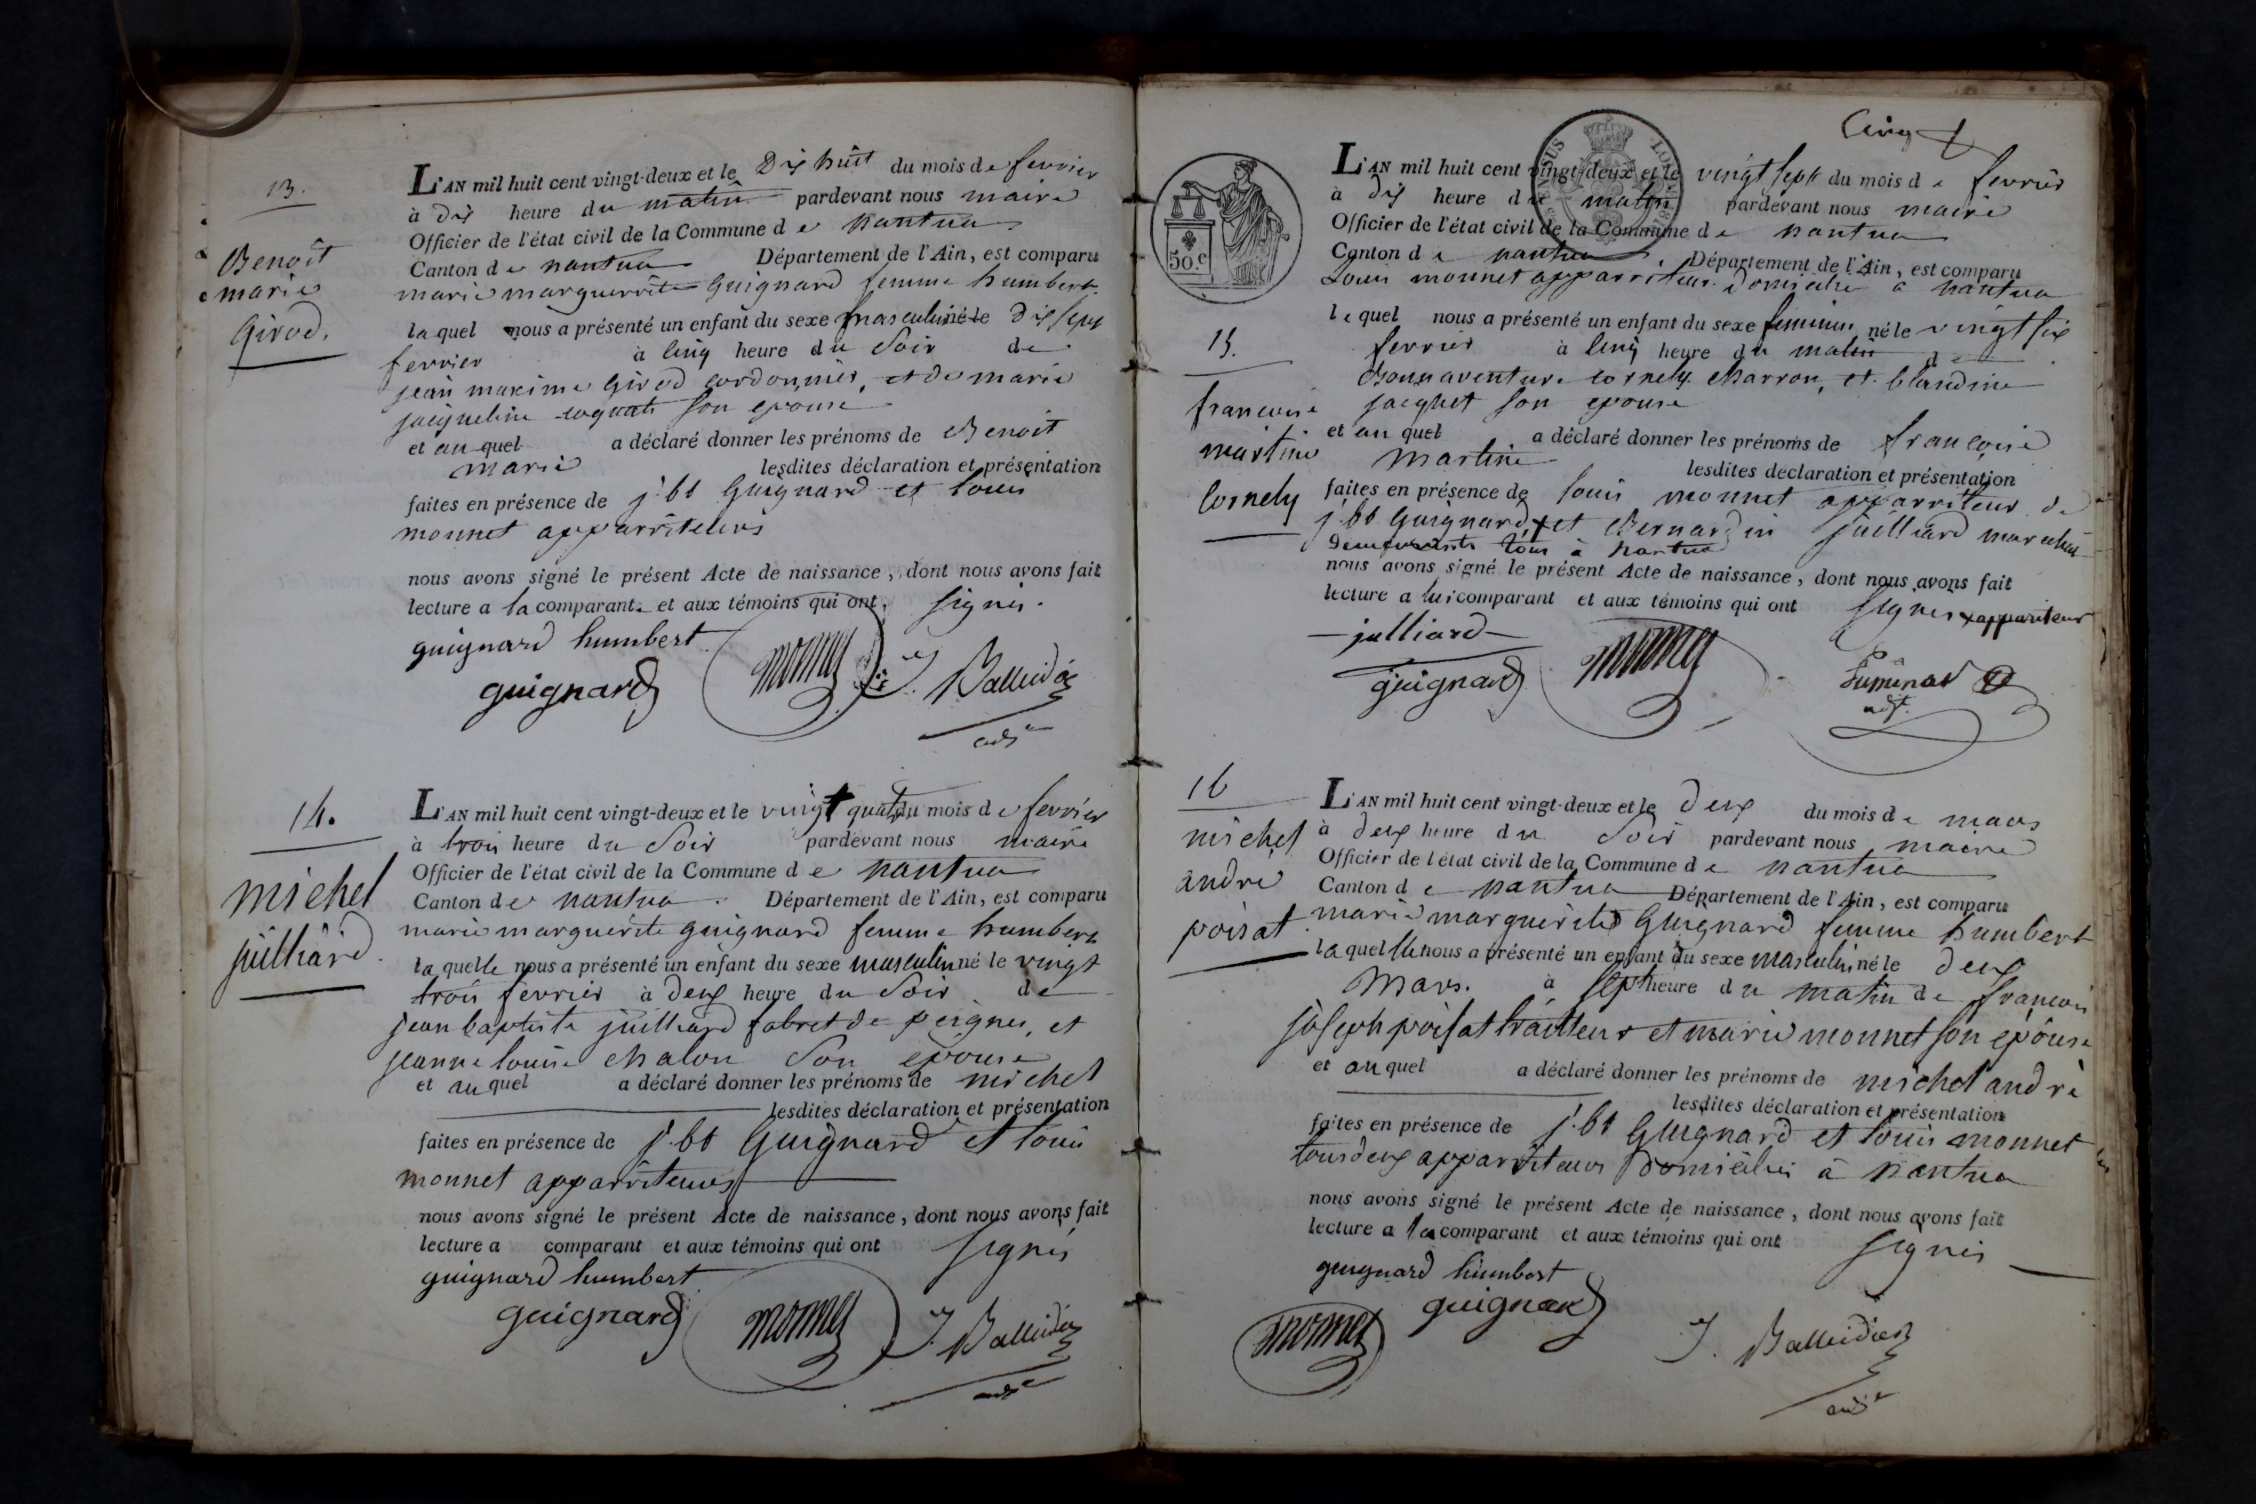 13.
Benoît
marie
Girod.
L'AN mil huit cent vingt-deux et le Dix huit du mois de fevrier
à dix heure du matin pardevant nous maire
Officier de l'état civil de la Commune de nantua
Canton de nantua Département de l'Ain, est comparu
marie marguerrite Guignard femme humbert.
laquel nous a présenté un enfant du sexe masculin né le dix sept
fevrier à cinq heure du soir de
jean maxime Girod cordonnier, et de marie
jacqueline cognat son epouse
et au quel a déclaré donner les prénoms de Benoit
marie lesdites déclaration et présentation
faites en présence de j. bt Guignard et louis
monnet apparriteurs
nous avons signé le présent Acte de naissance, dont nous avons fait
lecture a la comparante et aux témoins qui ont signés.
guignard humbert
guignard monnet J. Balleidier
adjt
14.
michel
juilliard.
L'AN mil huit cent vingt-deux et le vingt quatre du mois de fevrier
à trois heure du soir pardevant nous maire
Officier de l'état civil de la Commune de nantua
Canton de nantua Département de l'Ain, est comparu
marie marguérite guignard femme humbert
laquelle nous a présenté un enfant du sexe masculin né le vingt
trois fevrier à deux heure du soir de
jean baptiste juilliard fabt de peignes, et
jeanne louise chalon son epouse
et au quel a déclaré donner les prénoms de michel
lesdites déclaration et présentation
faites en présence de j. bt Guignard et louis
monnet apparriteurs
nous avons signé le présent Acte de naissance, dont nous avons fait
lecture a comparant et aux témoins qui ont signés
guignard humbert
guignard monnet J. Balleidier
adjt
Cinq
50.c
15.
francoise
martine
Cornely
L'AN mil huit cent vingt-deux et le vingt sept du mois de fevrier
à dix heure du matin pardevant nous maire
Officier de l'état civil de la Commune de nantua
Canton de nantua Département de l'Ain, est comparu
Louis monnet apparriteur domicilié a nantua
lequel nous a présenté un enfant du sexe feminin né le vingt six
fevrier à cinq heure du matin de
Bonnaventure cornely charron, et blandine
jacquet son epouse
et au quel a déclaré donner les prénoms de francoise
martine lesdites declaration et présentation
faites en présence de louis monnet apparriteur de
j. bt Guignard, x et Bernardin juilliard marechal
demeurants tous à nantua
nous avons signé le présent Acte de naissance, dont nous avons fait
lecture a lui comparant et aux témoins qui ont signés x appariteur
julliard
guignard monnet
adjt.
16
michel
andré
poisat
L'AN mil huit cent vingt-deux et le deux du mois de mars
à deux heure du soir pardevant nous maire
Officier de l'état civil de la Commune de nantua
Canton de nantua Département de l'Ain, est comparu
marie marguérite Guignard femme humbert
laquelle nous a présenté un enfant du sexe masculin né le deux
Mars. à sept heure du matin de francois
joseph poisat traitteur et marie monnet son epouse
et au quel a déclaré donner les prénoms de michel andrè
lesdites déclaration et présentation
faites en présence de j. bt Guignard et louis monnet
tous deux apparriteurs domiciliés à nantua
nous avons signé le présent Acte de naissance, dont nous avons fait
lecture a la comparant et aux témoins qui ont signés
guignard humbert
monnet guignard J. Balleidier
adjt